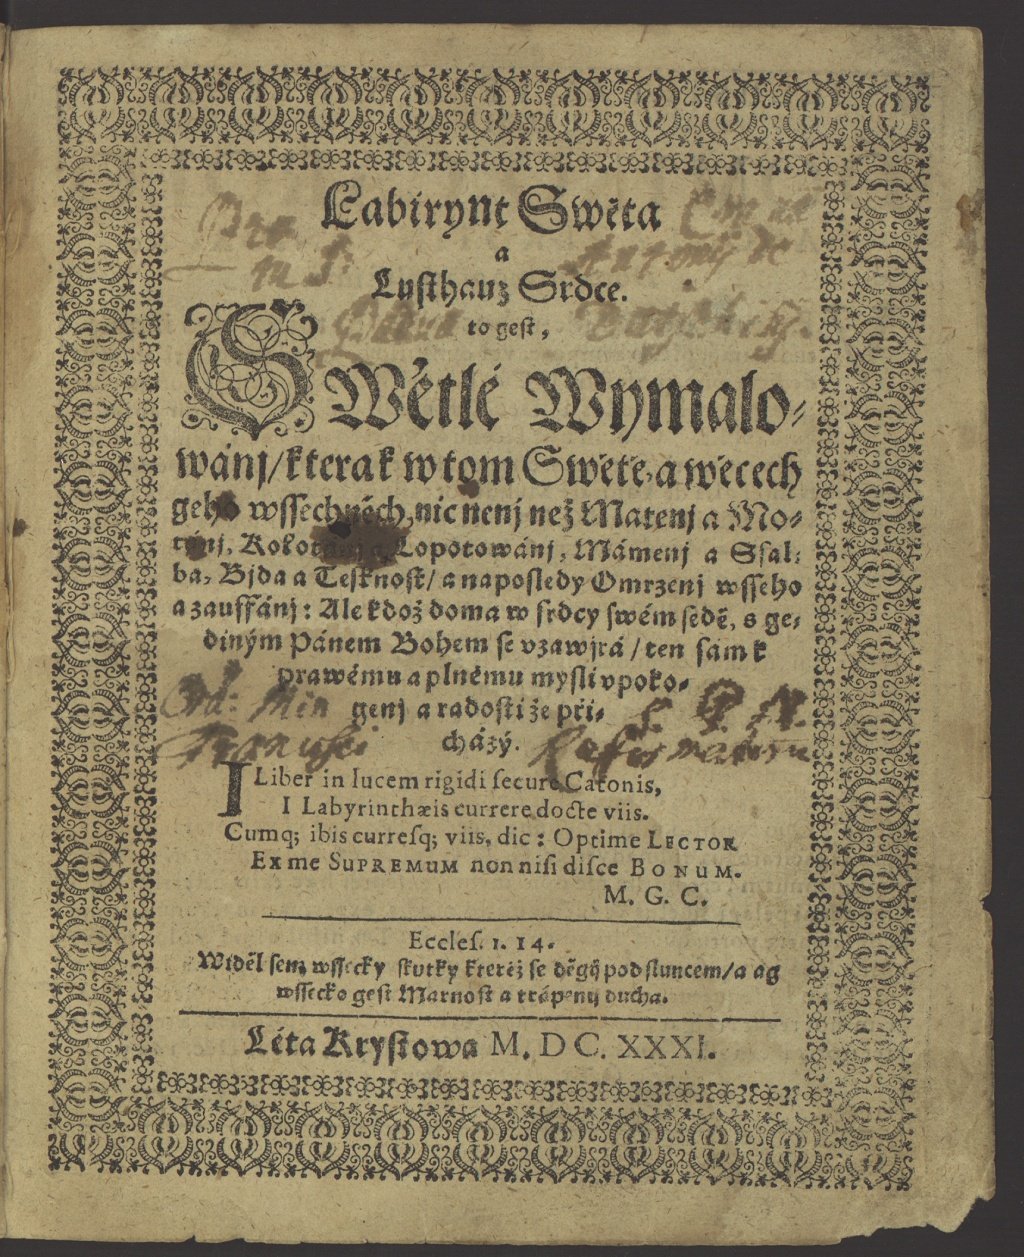 Labirynt Swěta
a
Lusthauz Srdce.
to gest,
SWětlé Wymalo-
wánj/ kterak w tom Swětě, a wěcech
geho wssechněch, nic nenj než Matenj a Mo-
tánj, Kolotánj a Lopotowánj, Mámenj a Ssal-
ba, Bjda a Tesknost/ a naposledy Omrzenj wsseho
a zauffánj: Ale kdož doma w srdcy swém sedě, s ge-
diným Pánem Bohem se vzawjrá/ ten sám k
prawému a plnému mysli vpoko-
genj a radosti že při-
cházý.
Ord: Min
I Liber in lucem rigidi secure Catonis,
I Labyrinthæis currere docte viis.
Cumq; ibis curresq; viis, dic: Optime LECTOR
Ex me SUPREMUM non nisi disce BONUM.
M. G. C.
Eccles. 1. 14.
Widěl sem wssecky skutky kteréž se děgij pod sluncem/ a ag
wssecko gest Marnost a trápenij ducha.
Léta Krystowa M. DC. XXXI.